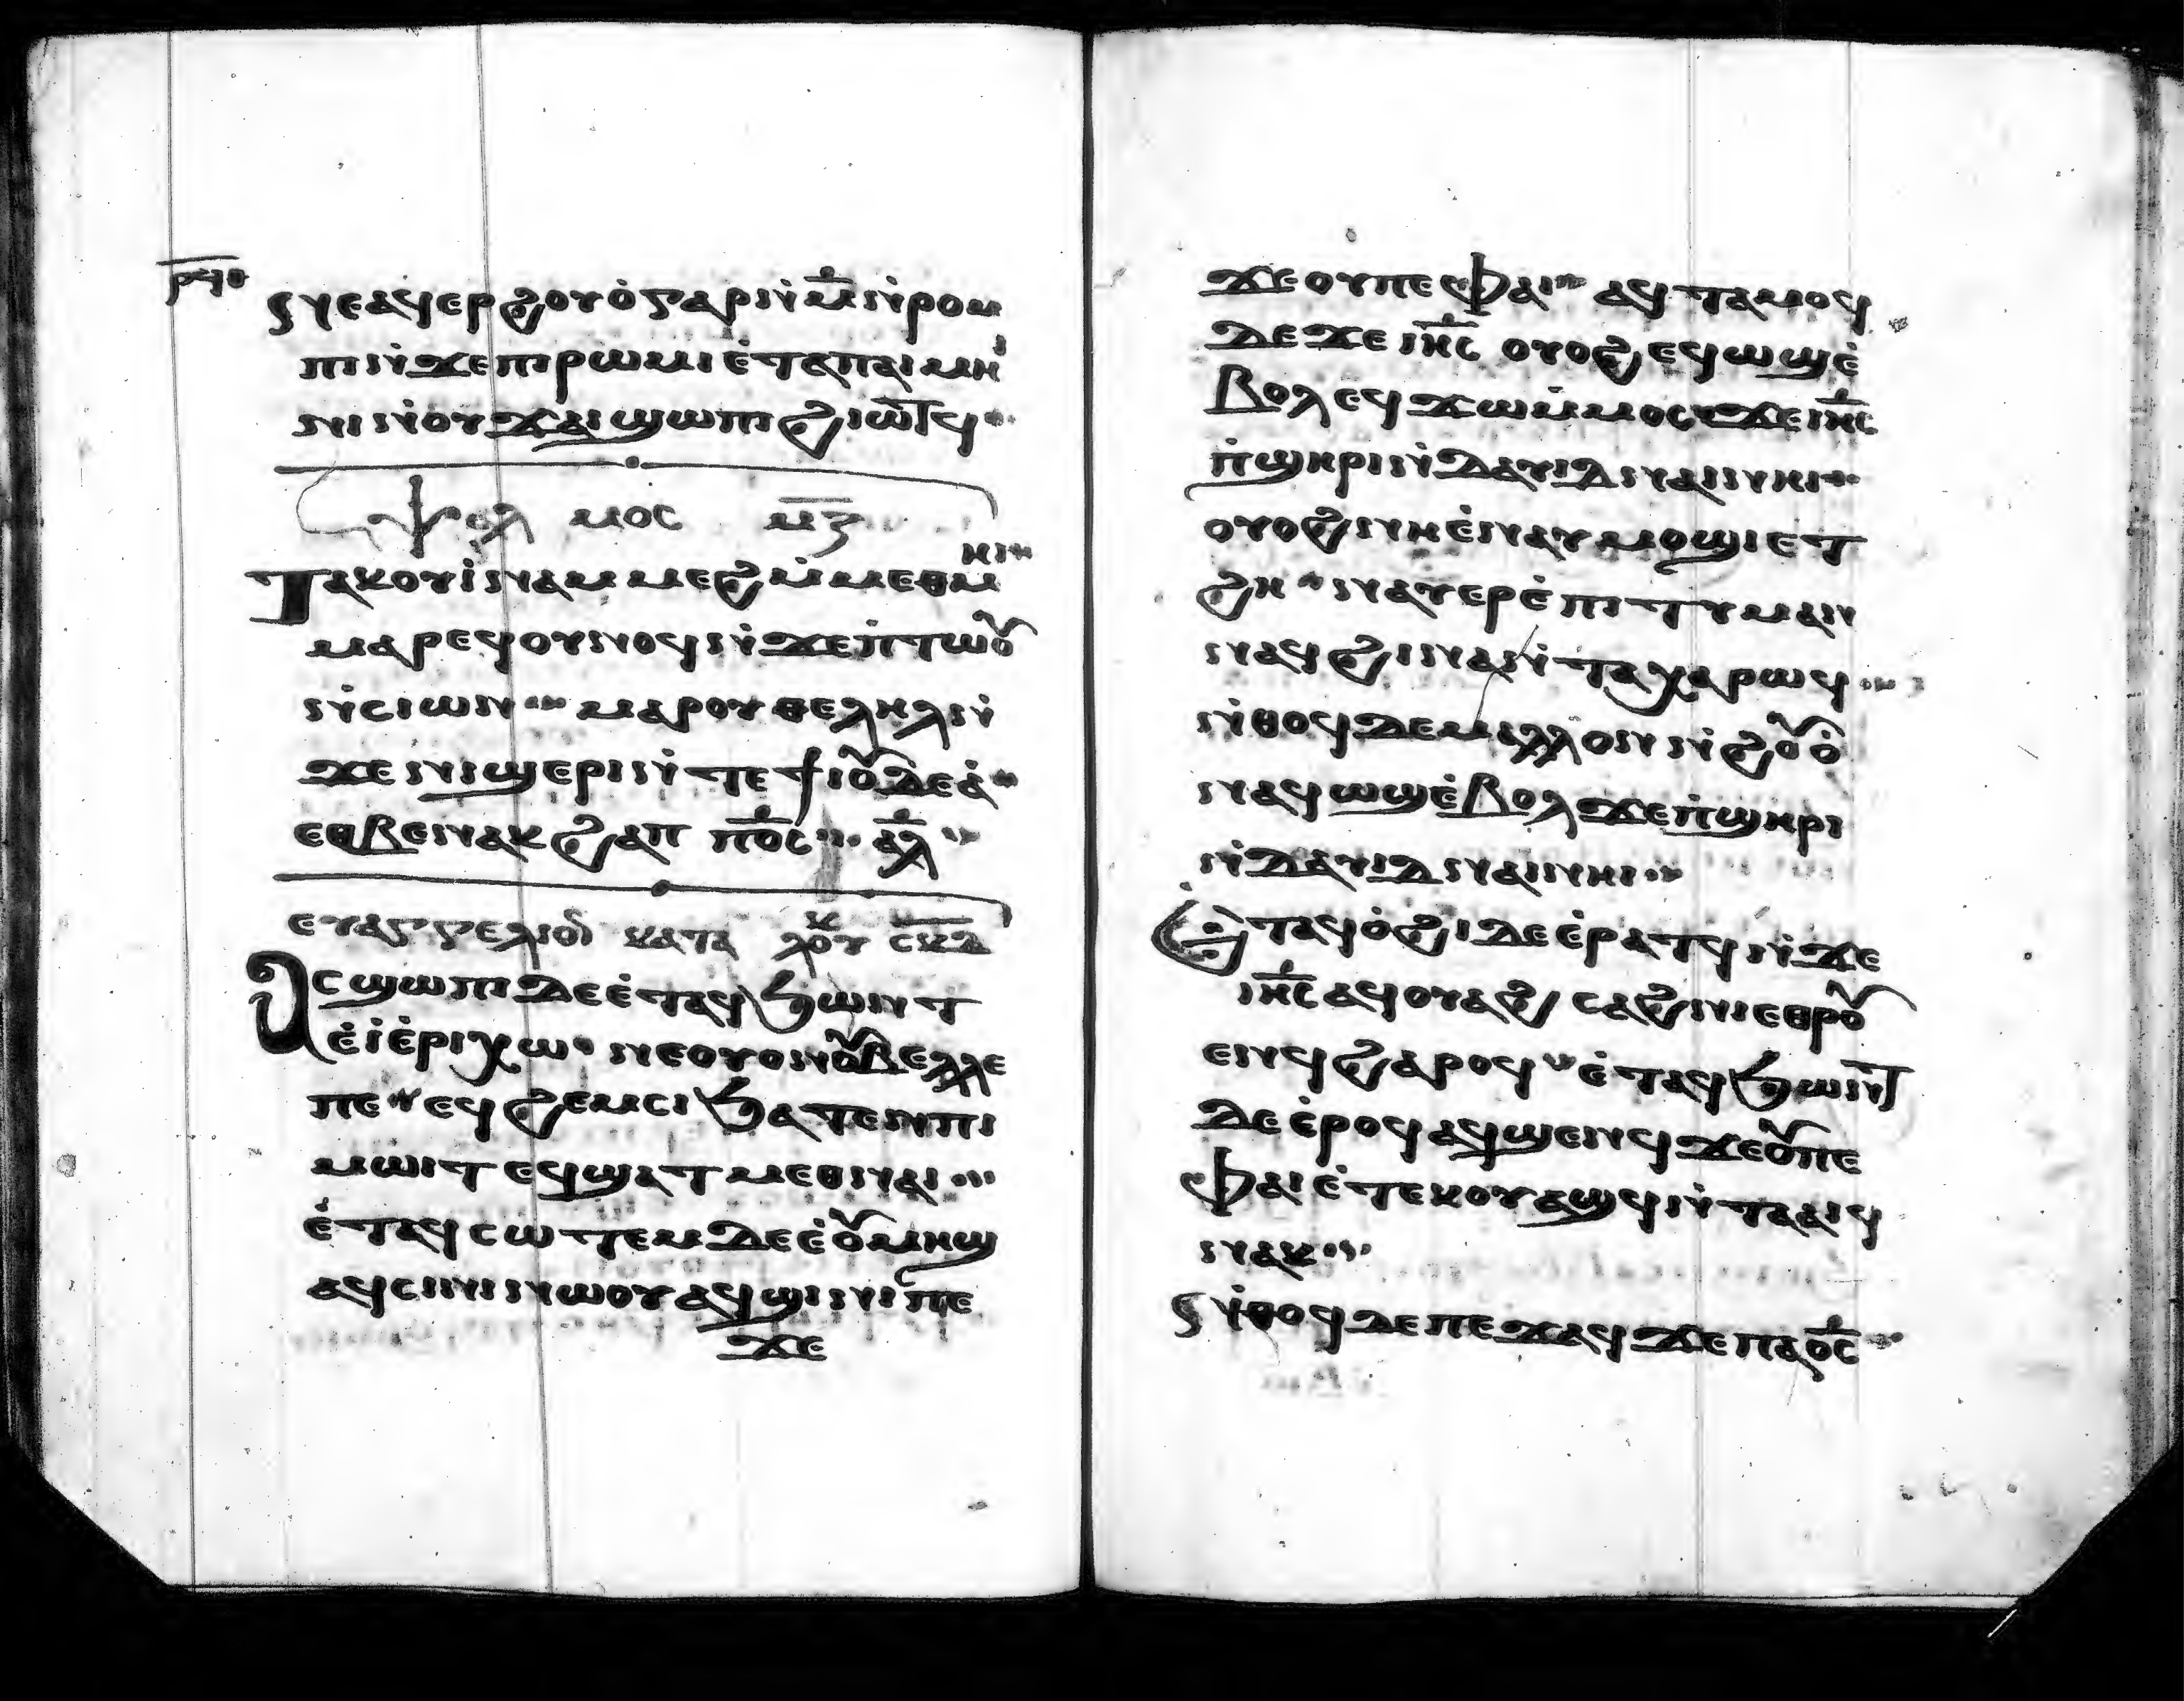 ⲣϥⲑ
ⲛⲉⲁϥⲉⲣϩⲟⲩⲟ̀ ⲅⲁⲣ ⲛ̀ⲙ̅ ⲛ̀ⲣⲟⲙ
ⲡⲓ ⲛ̀ϫⲉ ⲡⲓⲣⲱⲙⲓ ⲉ̀ⲧⲁⲡⲁⲓⲙⲏⲓ
ⲛⲓ ⲛ̀ⲟⲩϫⲁⲓ ϣⲱⲡⲓ ϩⲓⲱⲧϥ
ⲯⲁⲗⲙⲟⲥ ⲙ̅ⲍ̅
ⲧⲁⲕⲟⲩⲓ̀ⲛⲁⲙ ⲙⲉϩ ⲙ̀ⲙⲉⲑⲙⲏⲓ
ⲙⲁⲣⲉϥⲟⲩⲛⲟϥ ⲛ̀ϫⲉ ⲡ̀ⲧⲱⲟⲩ
ⲛ̀ⲥⲓⲱⲛ ⲙⲁⲣⲟⲩⲑⲉⲗⲏⲗ ⲛ̀
ϫⲉ ⲛⲓϣⲉⲣⲓ ⲛ̀ⲧⲉ ϯⲓⲟⲩⲇⲉⲁ̀
ⲉⲑⲃⲉ ⲛⲁⲕϩⲁⲡ ⲡⲟ̅ⲥ̅ ⲁ̅ⲗ̅
ⲉⲩⲁⲅⲅⲉⲗⲓⲟⲛ ⲕⲁⲧⲁ ⲗⲟⲩⲕ ⲥ̅ⲕ̅ⲇ̅
ⲁⲥϣⲱⲡⲓ ⲇⲉ ⲉ̀ⲧⲁϥϧⲱⲛⲧ
ⲉ̀ⲓ̀ⲉ̀ⲣⲓⲭⲱ ⲛⲉⲟⲩⲟⲛ ⲟⲩⲃⲉⲗⲗⲉ
ⲡⲉ ⲉϥϩⲉⲙⲥⲓ ϧⲁⲧⲉⲛ ⲡⲓ
ⲙⲱⲓⲧ ⲉϥϣⲁⲧⲙⲉⲑⲛⲁⲓ
ⲉ̀ⲧⲁϥⲥⲱⲧⲉⲙ ⲇⲉ ⲉ̀ⲟⲩⲙⲏϣ
ⲁϥⲥⲓⲛⲓ ⲛⲱⲟⲩ ⲁϥϣⲓⲛⲓ ⲡⲉ
ϫⲉ
ϫⲉ ⲟⲩ ⲡⲉ ⲫⲁⲓ ⲁϥⲧⲁⲙⲟϥ
ⲇⲉ ϫⲉ ⲓⲏ̅ⲥ̅ ⲟⲩⲟϩ ⲉϥⲱϣ ⲉ̀
ⲃⲟⲗ ⲉϥϫⲱ ⲙ̀ⲙⲟⲥ ϫⲉ ⲓⲏ̅ⲥ̅
ⲡ̀ϣⲏⲣⲓ ⲛ̀ⲇⲁⲩⲓⲇ ⲛⲁⲓ ⲛⲏⲓ
ⲟⲩⲟϩ ⲛⲏ ⲉ̀ⲛⲁⲩⲙⲟϣⲓ ⲉⲧ
ϩⲏ ⲛⲁⲩⲉⲣⲉ̀ⲡⲓⲧⲩⲙⲁⲛ
ⲛⲁϥ ϩⲓⲛⲁ ⲛ̀ⲧⲁⲭⲁⲣⲱϥ
ⲛ̀ⲑⲟϥ ⲇⲉ ⲙⲁⲗⲗⲟⲛ ⲛ̀ϩⲟⲩⲟ̀
ⲛⲁϥⲱϣ ⲉ̀ⲃⲟⲗ ϫⲉ ⲡ̀ϣⲏⲣⲓ
ⲛ̀ⲇⲁⲩⲓⲇ ⲛⲁⲓ ⲛⲏⲓ
ⲉ̀ⲧⲁϥⲟ̀ϩⲓ ⲇⲉ ⲉ̀ⲣⲁⲧϥ ⲛ̀ϫⲉ
ⲓⲏ̅ⲥ̅ ⲁϥⲟⲩⲁϩ ⲥⲁϩⲛⲓ ⲉⲑⲣⲟⲩ
ⲉⲛϥ ϩⲁⲣⲟϥ ⲉ̀ⲧⲁϥϧⲱⲛⲧ
ⲇⲉ ⲉ̀ⲣⲟϥ ⲁϥϣⲉⲛϥ ϫⲉ ⲟⲩ ⲡⲉ
ⲫⲁⲓ ⲉ̀ⲧⲉⲕⲟⲩⲁϣϥ ⲛ̀ⲧⲁⲁⲓϥ
ⲛⲁⲕ
ⲛ̀ⲑⲟϥ ⲇⲉ ⲡⲉϫⲁϥ ϫⲉ ⲡⲁⲟ̅ⲥ̅